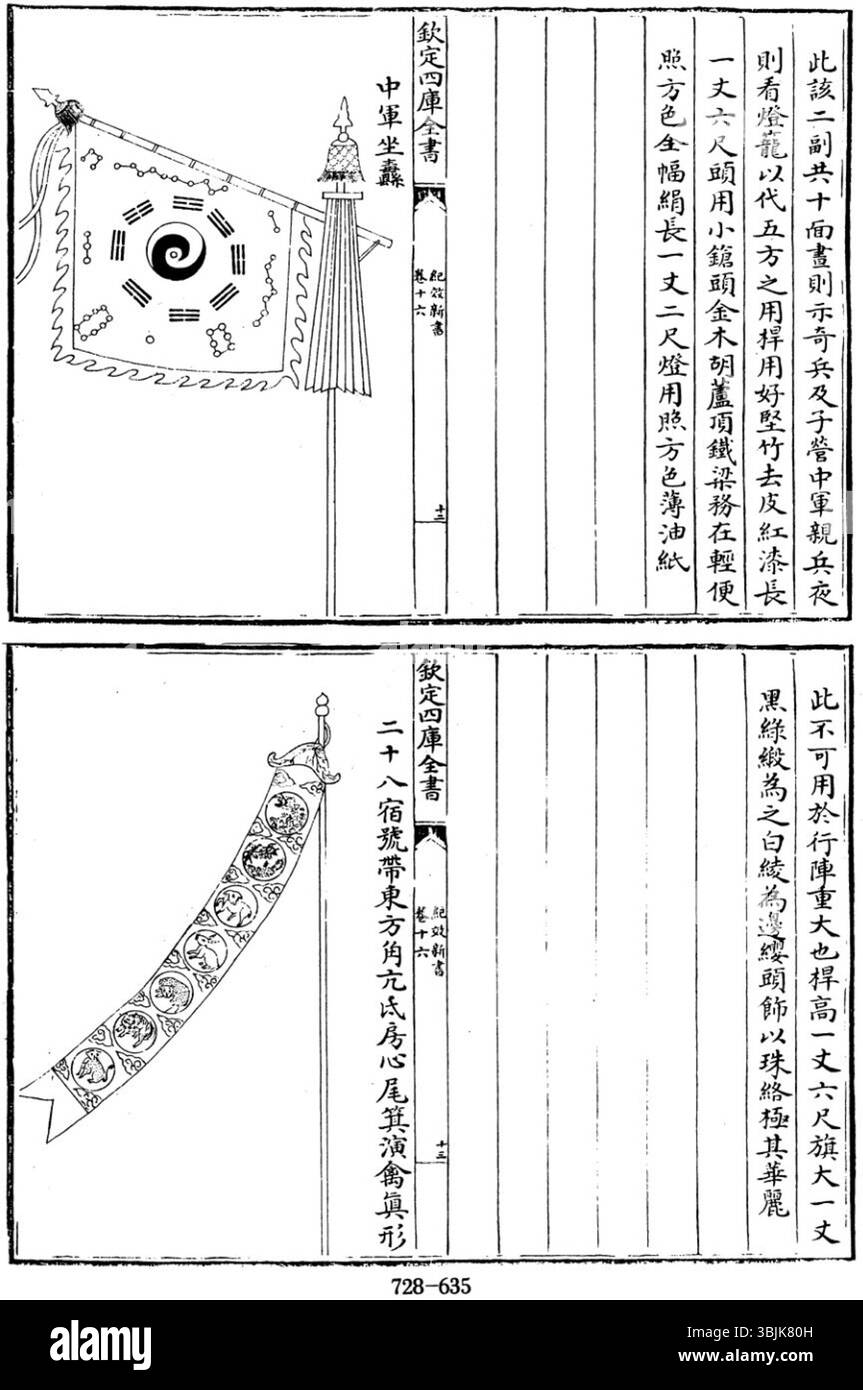 此該二副共十面畫則示奇兵及子營中軍親兵夜
則看燈籠以代五方之用桿用好堅竹去皮紅漆長
一丈六尺頭用小鎗頭金木胡蘆頂鐵梁務在輕便
照方色全幅絹長一丈二尺燈用照方色薄油紙
欽定四庫全書
紀效新書
卷十六
十三
中軍坐纛
此不可用於行陣重大也桿高一丈六尺旗大一丈
黑綠緞為之白綾為邊纓頭飾以珠絡極其華麗
欽定四庫全書
紀效新書
卷十六
十三
二十八宿號帶東方角亢氐房心尾箕演禽真形
728-635
alamy
Image ID: 3BJK80H
www.alamy.com